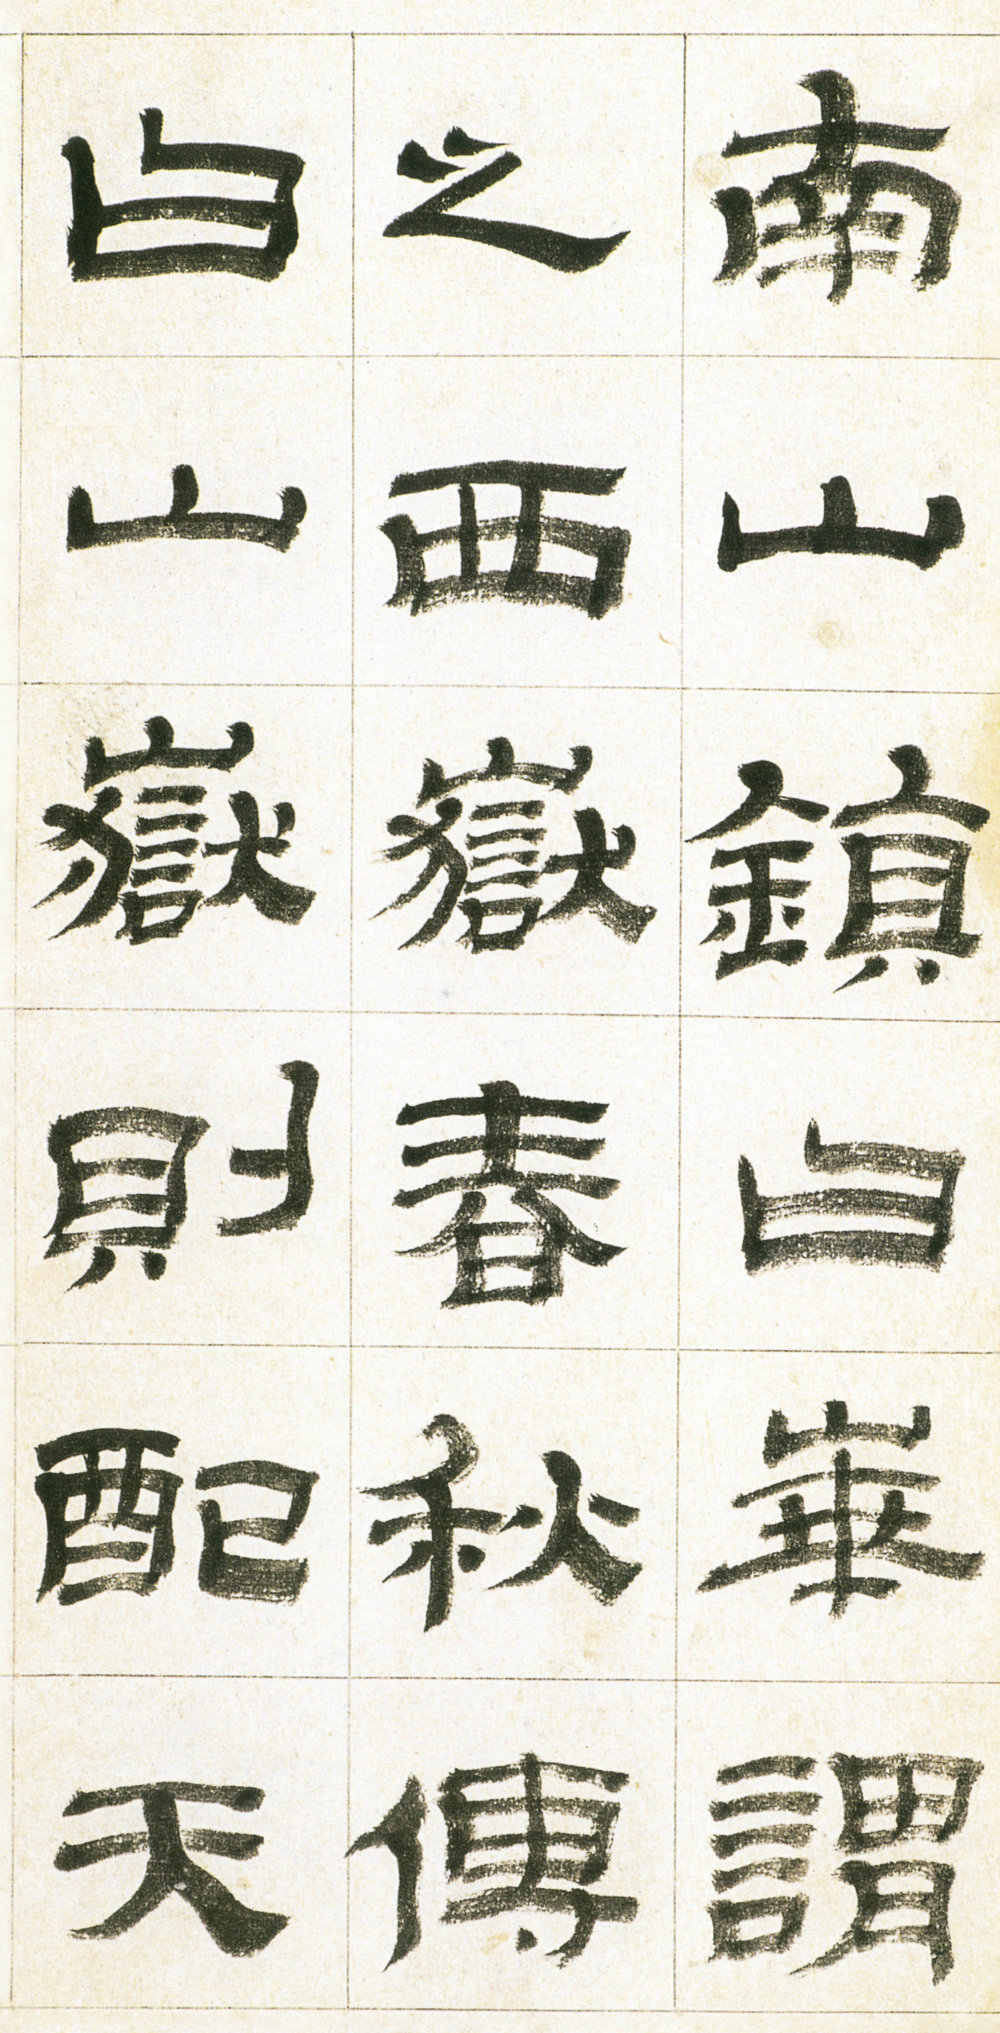 南山鎮曰崋謂
之西嶽春秋傳
曰山嶽則配天